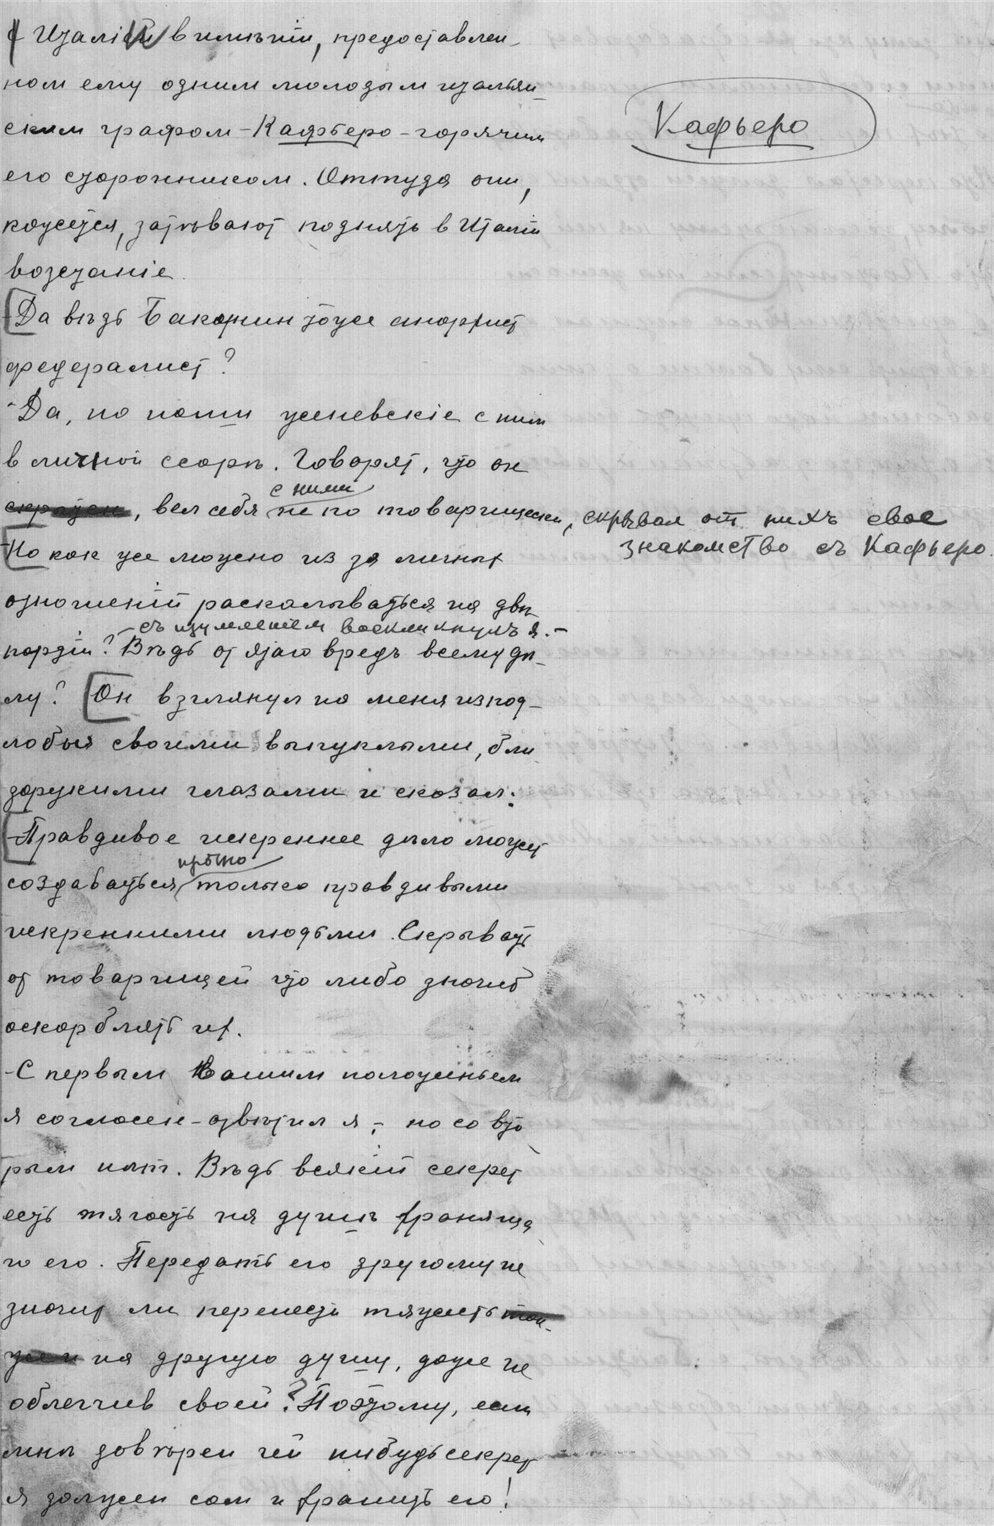 с Италіи в имѣніи, предоставлен-
ном ему одним молодым итальян-
ским графом – Кафьеро – горячим
Кафьеро
его сторонником. Оттуда они,
кажется, затѣвают поднять в Италіи
возстаніе
– Да вѣдь Бакунин тоже анархист
федералист?
– Да, но наши женевскіе с ним
в личной ссорѣ. Говорят, что он
, вел себя с ними не по товарищески, скрывал от нихъ свое
знакомство съ Кафьеро.
– Но как же можно из за личных
отношеній раскалываться на двѣ
партіи? – съ изумленіемъ воскликнулъ я. –
Вѣдь от этаго вредъ всему дѣ-
лу? Он взглянул на меня изпод-
лобья своими выпуклыми, бли-
зорукими глазами и сказал:
– Правдивое искреннее дѣло может
создаваться прочно только правдивыми
искренними людьми. Скрывать
от товарищей что либо значит
оскорблять их.
– С первым Вашим положеньем
я согласен – отвѣтил я, – но со вто-
рым нѣт. Вѣдь всякій секрет
есть тягость на душѣ храняща-
го его. Передать его другому не
значит ли перенести тяжесть
на другую душу, даже не
облегчив своей? Поэтому, если
мнѣ довѣрен чей нибудь секрет
я должен сам и хранить его!